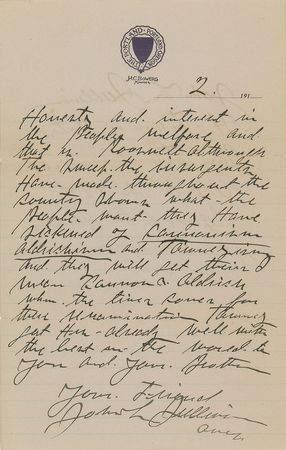 THE PORTLAND · PORTLAND, OREGON
H.C. BOWERS
MANAGER
2. 191
Honesty and interest in
the Peoples welfare and
that is Roosvelt although
The Sweep the insurgents
Have made throughout the
Country Shows what the
People want they Have
Sickened of Cannonism
Aldrichism and Tawneyism
and they will get theirs I
mean Cannon & Aldrich
when the time comes for
there renomination Tawney
got His already well with
the best in the world to
You and Your Brother
Your Friend
John L Sullivan